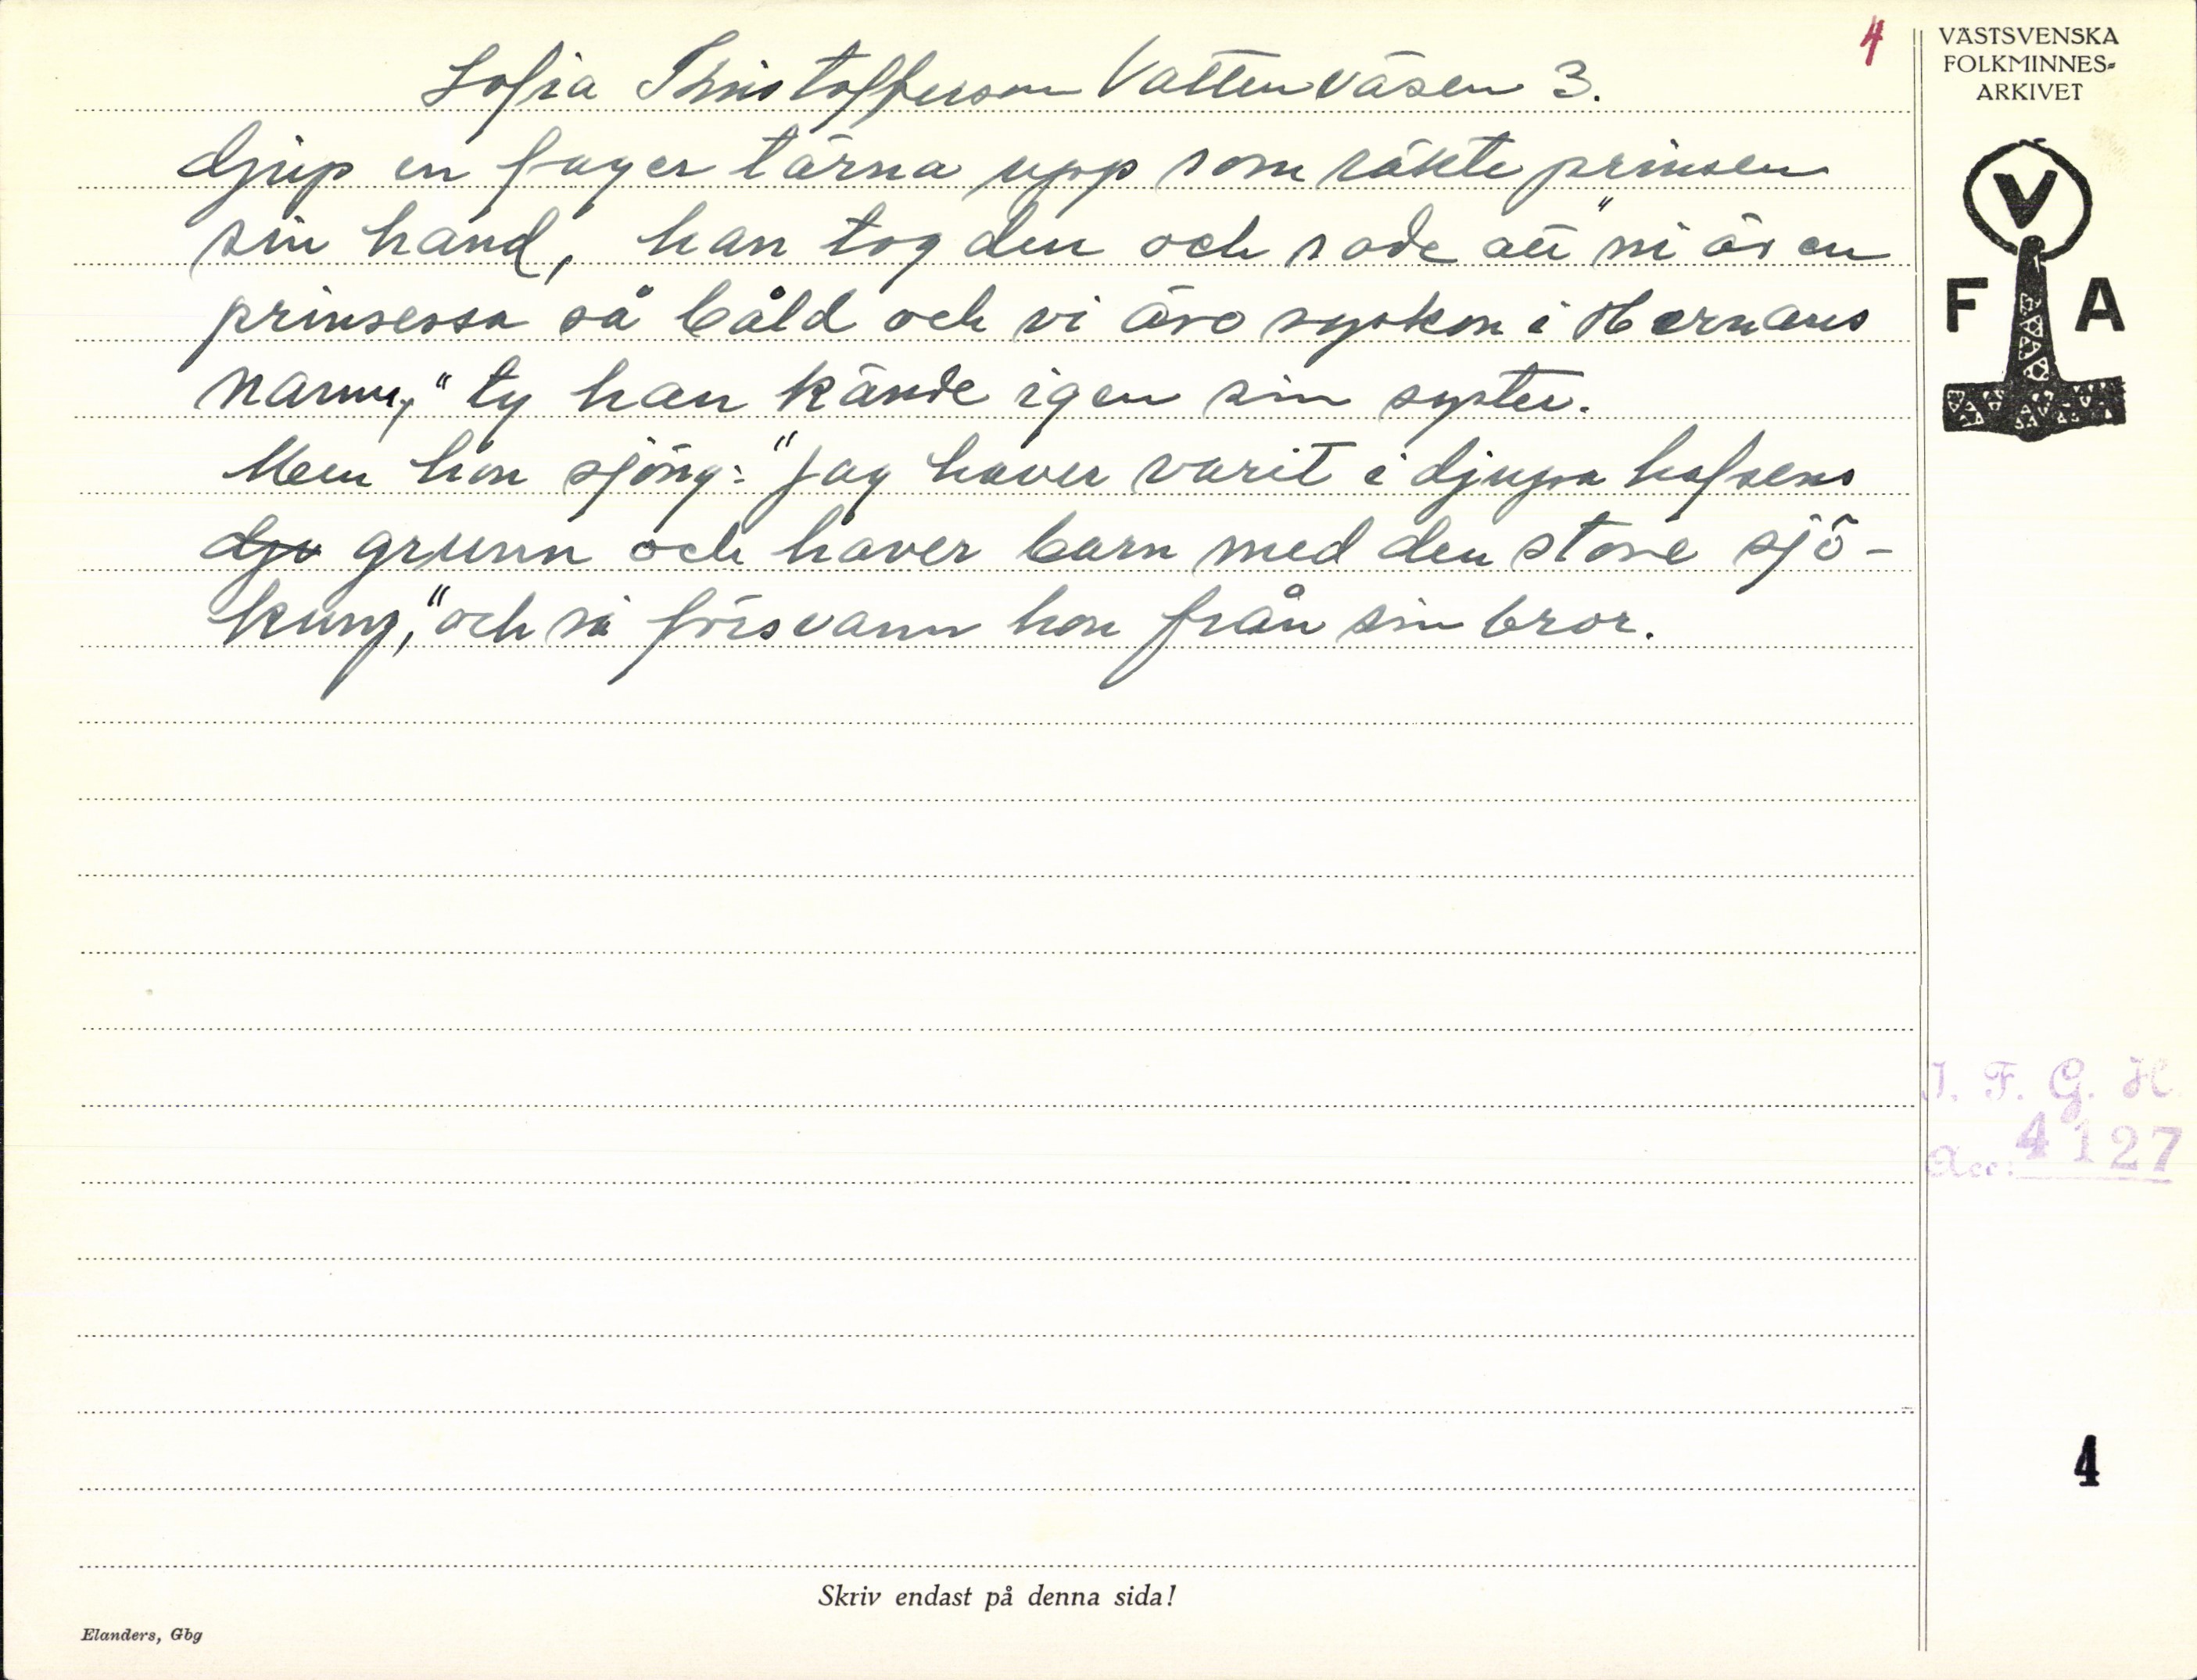 4
VÄSTSVENSKA
FOLKMINNES-
ARKIVET
V
F A
Sofia Kristoffersson Vattenväsen 3.
djup en fager tärna upp som räkte prinsen
sin hand, han tog den och sade att "ni är en
prinsessa så båld och vi äro syskon i Herrans
namn," ty han kände igen sin syster.
Men hon sjöng: "Jag haver varit i djupa hafsens
dju grunn och haver barn med den store sjö-
kung," och så försvann hon från sin bror.
I. F. G. H
Acc: 4127
4
Skriv endast på denna sida!
Elanders, Gbg